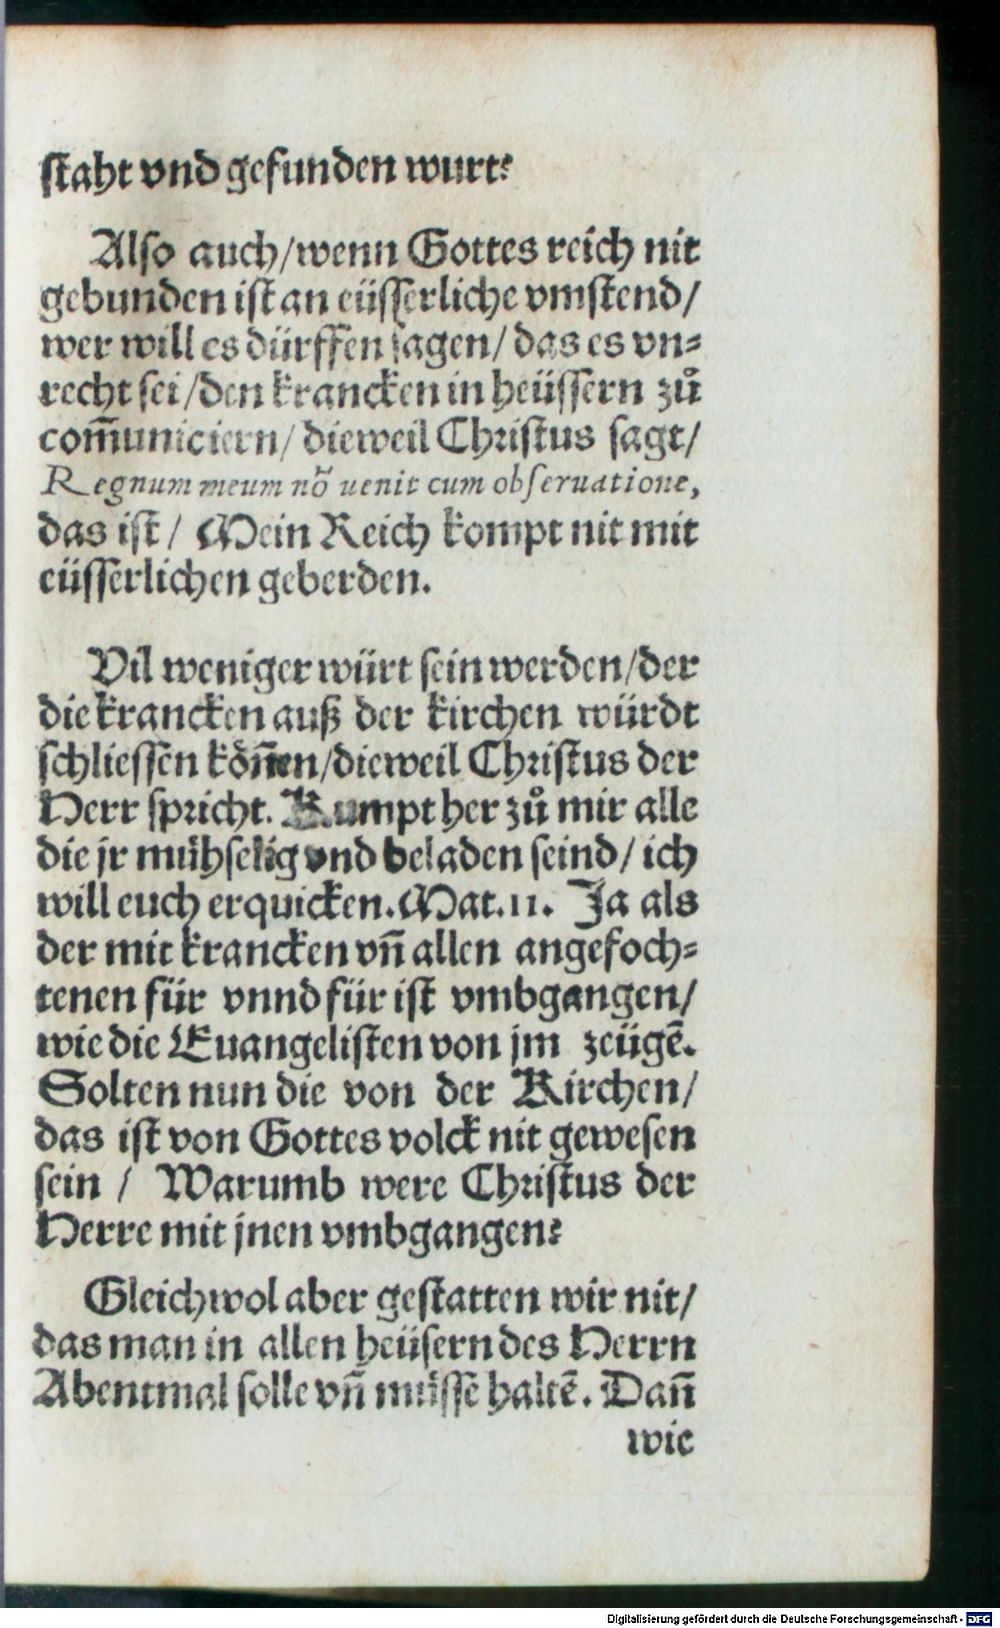 staht vnd gefunden wurt?
Also auch/wenn Gottes reich nit
gebunden ist an eüsserliche vmstend/
wer will es dürffen sagen/ das es vn⸗
recht sei/den krancken in heüssern zů
com̃uniciern/ dieweil Christus sagt/
Regnum meum nõ uenit cum obseruatione,
das ist/ Mein Reich kompt nit mit
eüsserlichen geberden.
Vil weniger würt sein werden/der
die krancken auß der kirchen würdt
schliessen kön̄en/dieweil Christus der
Herr spricht. Kumpt her zů mir alle
die jr mühselig vnd beladen seind/ ich
will euch erquicken. Mat. 11. Ja als
der mit krancken vñ allen angefoch⸗
tenen für vnnd für ist vmbgangen/
wie die Euangelisten von jm zeügē.
Solten nun die von der Kirchen/
das ist von Gottes volck nit gewesen
sein / Warumb were Christus der
Herre mit jnen vmbgangen?
Gleichwol aber gestatten wir nit/
das man in allen heüsern des Herrn
Abentmal solle vñ müssē haltē. Dañ
wie
Digitalisierung gefördert durch die Deutsche Forschungsgemeinschaft - DFG